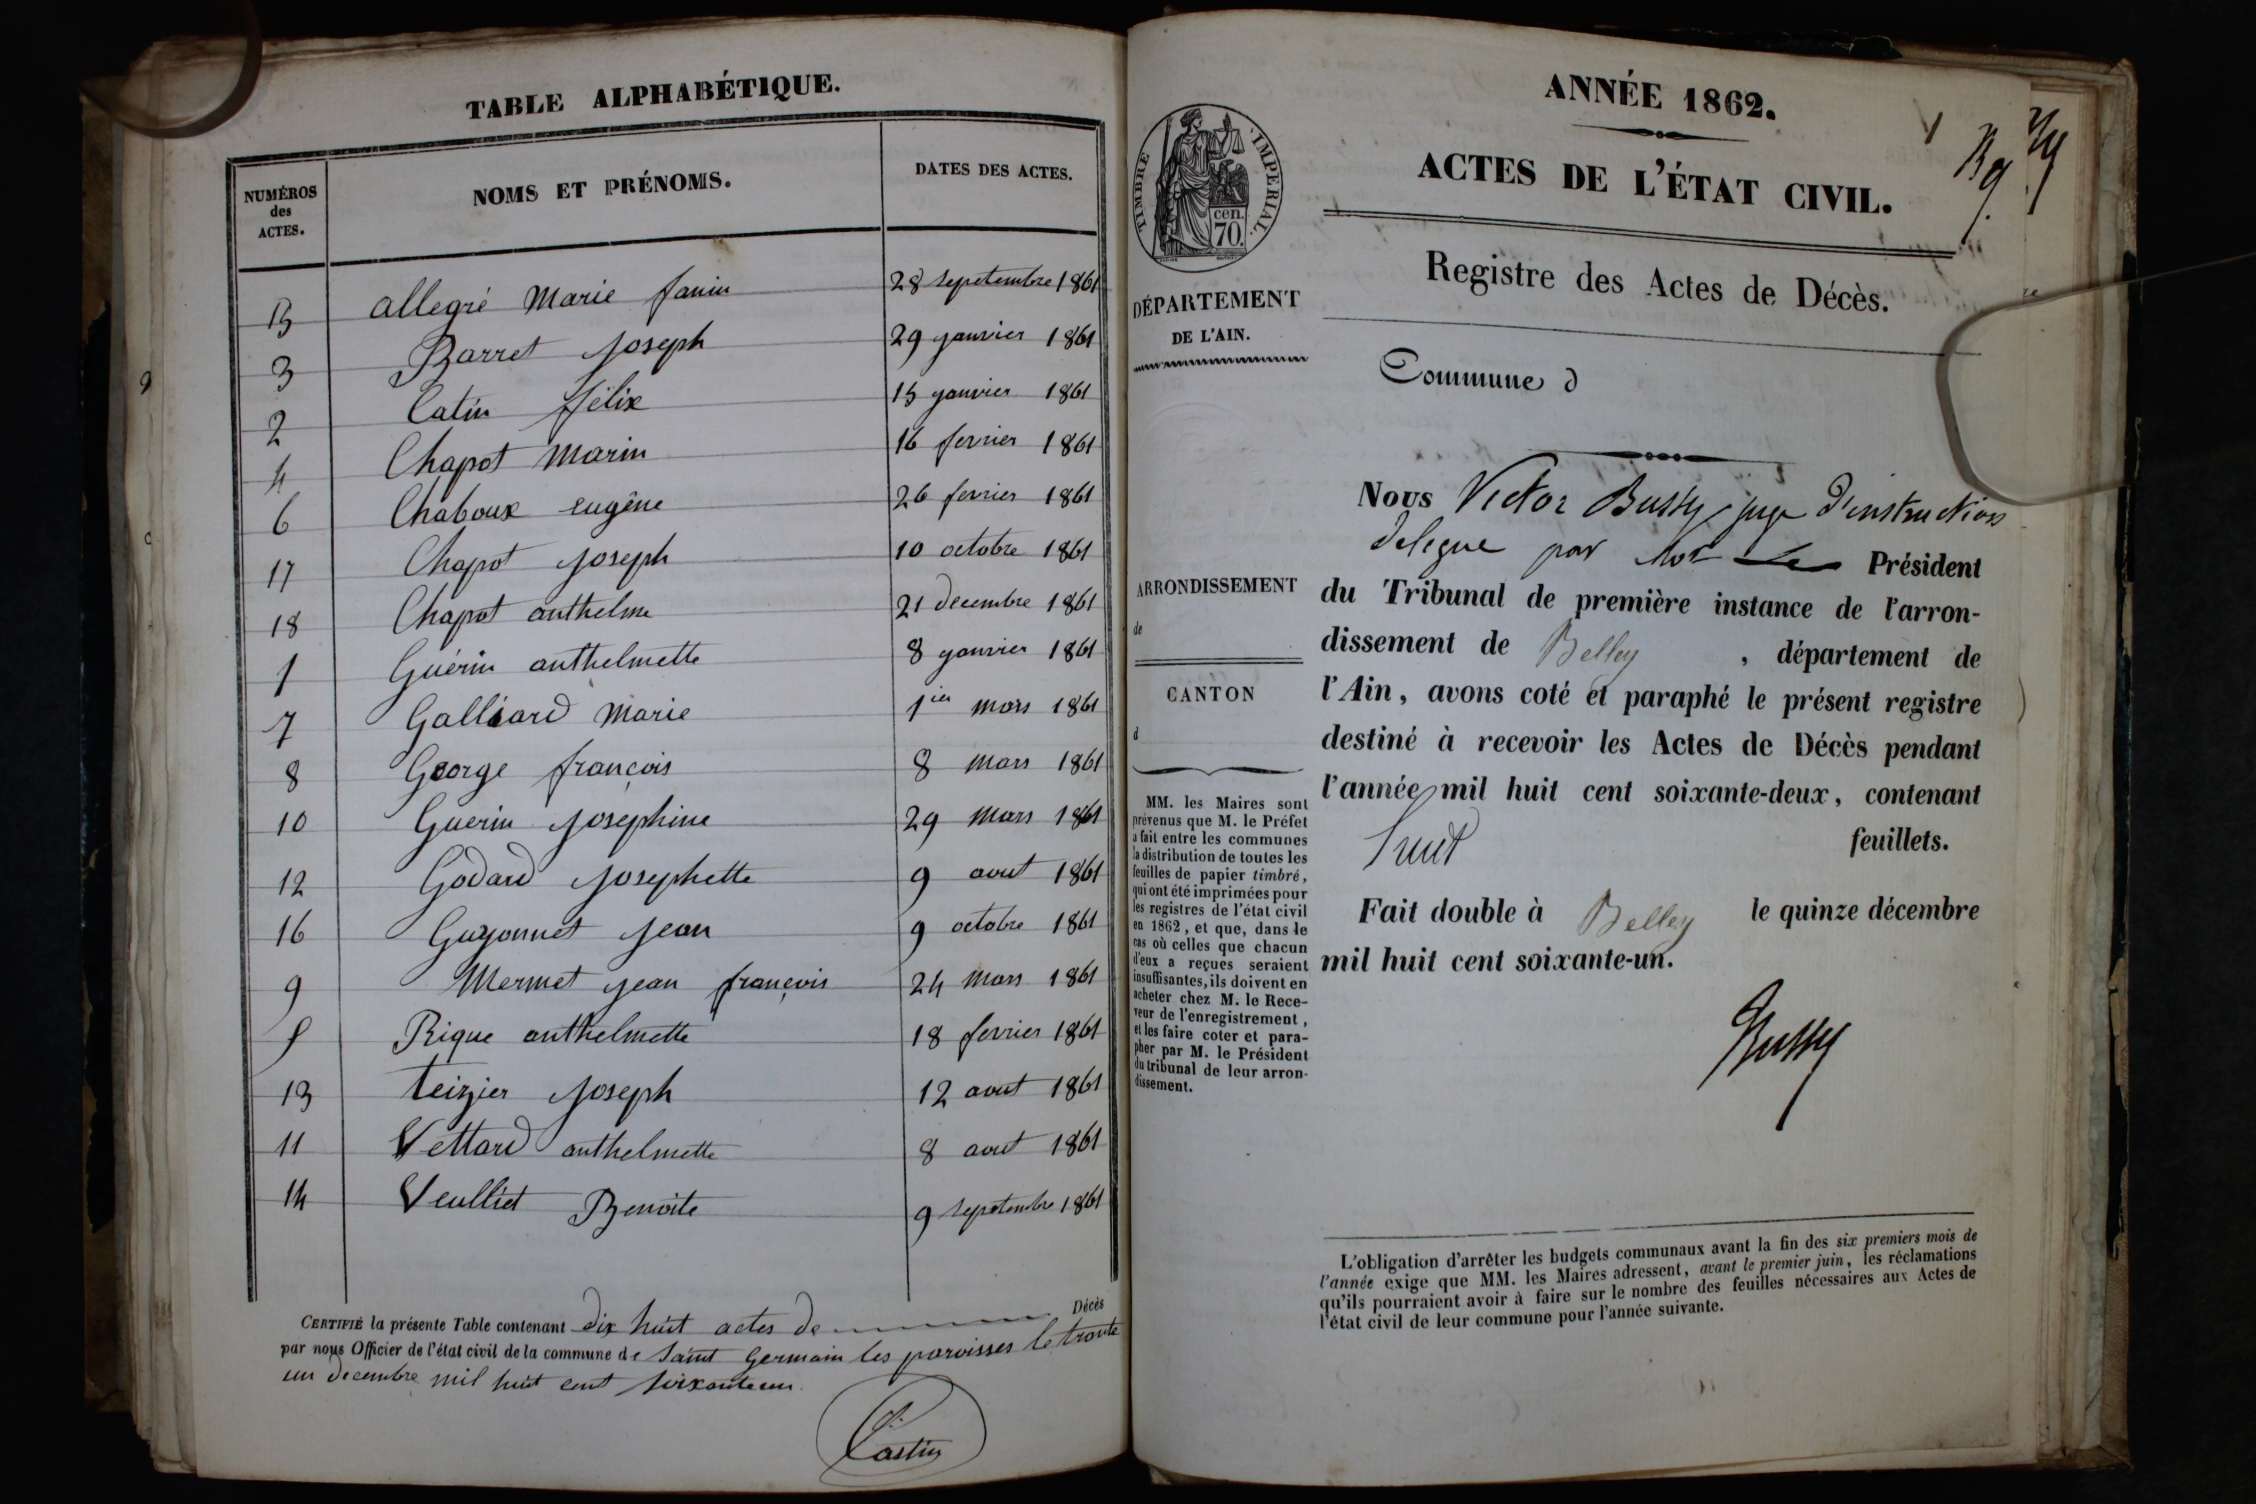 TABLE ALPHABÉTIQUE.
NUMÉROS
des
ACTES.
NOMS ET PRÉNOMS.
DATES DES ACTES.
15 allegré Marie fanin 28 septembre 1861
3 Barret Joseph 29 janvier 1861
2 Catin félix 15 janvier 1861
4 Chapot Marin 16 fevrier 1861
6 Chaboux eugêne 26 fevrier 1861
17 Chapot Joseph 10 octobre 1861
18 Chapot anthelme 21 decembre 1861
1 Guérin anthelmette 8 janvier 1861
7 Galliard Marie 1ier mars 1861
8 George françois 8 mars 1861
10 Guerin Josephine 29 mars 1861
12 Godard Josephette 9 aout 1861
16 Guyonnet Jean 9 octobre 1861
9 Mermet Jean françois 24 mars 1861
5 Rique anthelmette 18 fevrier 1861
13 teizier Joseph 12 aout 1861
11 Vettard anthelmette 8 aout 1861
14 Veulliet Benoite 9 septembre 1861
CERTIFIÉ la présente Table contenant dix huit actes de Décès
par nous Officier de l'état civil de la commune de Saint Germain les paroisses le trente
un decembre mil huit cent soixante un.
Castin
ANNÉE 1862.
1
ACTES DE L'ÉTAT CIVIL.
TIMBRE IMPERIAL.
cen.
70.
Registre des Actes de Décès.
DÉPARTEMENT
DE L'AIN.
Commune d
Nous Victor Bussy juge d'instruction
delegue par Mr Le Président
du Tribunal de première instance de l'arron-
dissement de Belley, département de
l'Ain, avons coté et paraphé le présent registre
destiné à recevoir les Actes de Décès pendant
l'année mil huit cent soixante-deux, contenant
huit feuillets.
Fait double à Belley le quinze décembre
mil huit cent soixante-un.
Bussy
ARRONDISSEMENT
de
CANTON
d
MM. les Maires sont
prévenus que M. le Préfet
a fait entre les communes
la distribution de toutes les
feuilles de papier timbré,
qui ont été imprimées pour
les registres de l'état civil
en 1862, et que, dans le
cas où celles que chacun
d'eux a reçues seraient
insuffisantes, ils doivent en
acheter chez M. le Rece-
veur de l'enregistrement,
et les faire coter et para-
pher par M. le Président
du tribunal de leur arron-
dissement.
L'obligation d'arrêter les budgets communaux avant la fin des six premiers mois de
l'année exige que MM. les Maires adressent, avant le premier juin, les réclamations
qu'ils pourraient avoir à faire sur le nombre des feuilles nécessaires aux Actes de
l'état civil de leur commune pour l'année suivante.